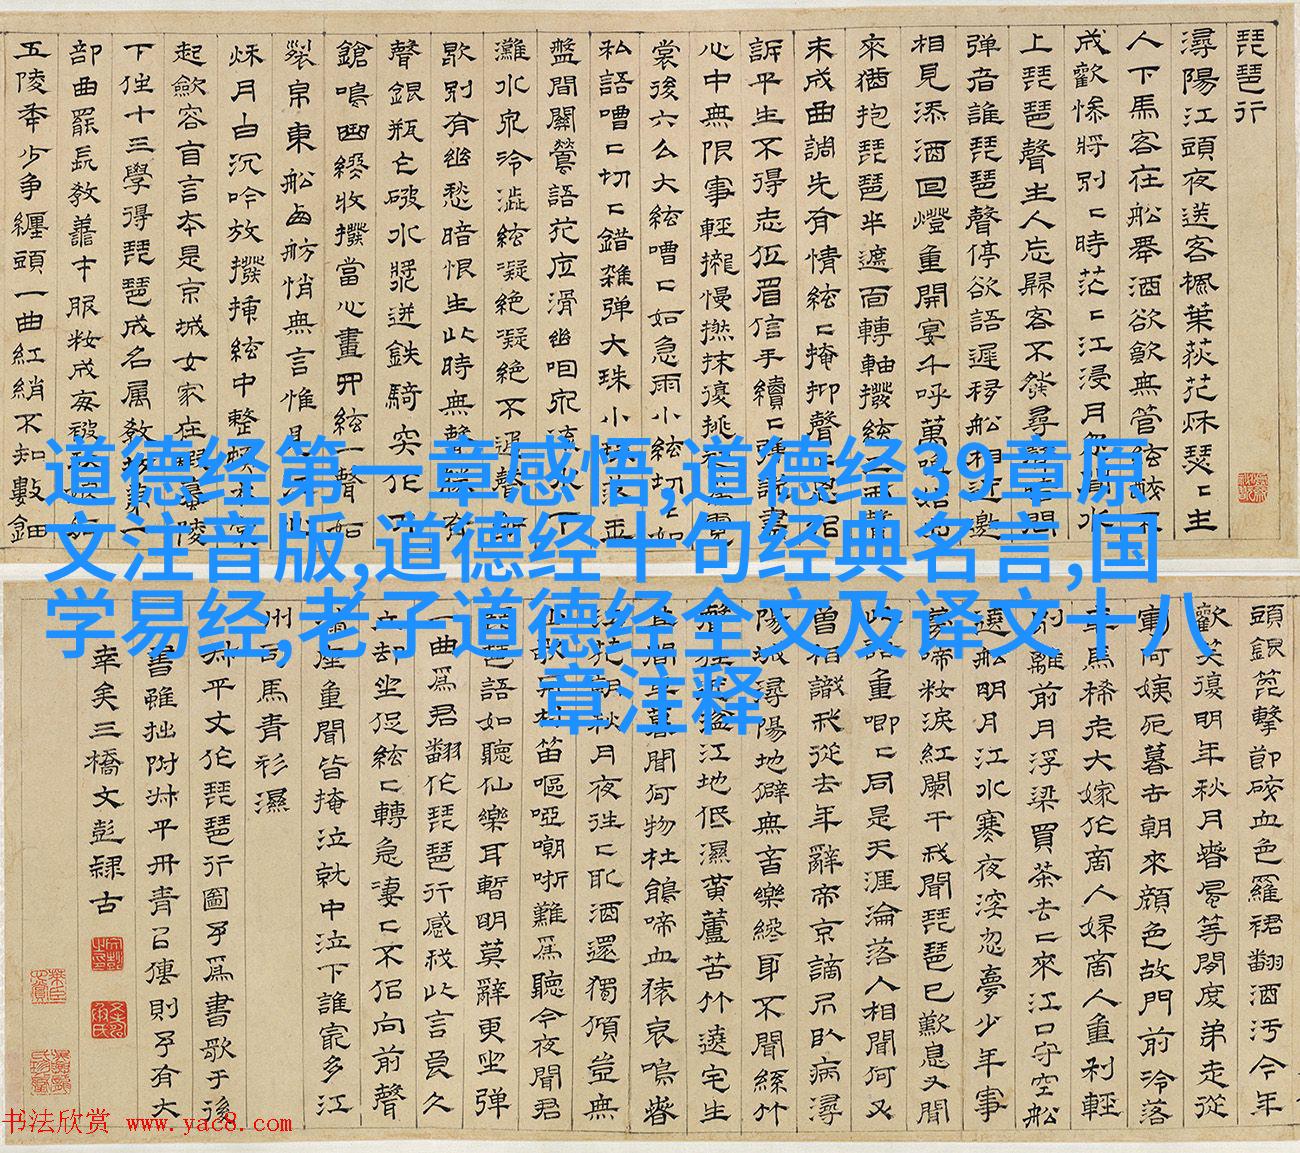 道德经第一章感悟,道德经39章原
文注音版,道德经十句经典名言,国
学易经,老子道德经全文及译文十八
章注释
琵琶行
潯陽江頭夜送客楓葉荻花秋瑟二主
人下馬客在船舉酒欲飲無管絃醉不
成歡慘將別二時茫二江浸月忽聞水
上琵琶聲主人忘歸客不發尋聲暗問
彈者誰琵琶聲停欲語遲移船相近邀
相見添酒回燈重開宴千呼萬喚始出
來猶抱琵琶半遮面轉軸撥絃三兩聲
未成曲調先有情絃二掩抑聲二思似
訴平生不得志低眉信手續二彈說盡
心中無限事輕攏慢撚抹復挑初為霓
裳後六么大絃嘈二如急雨小絃切二如
私語嘈二切二錯雜弹大珠小珠落玉
盤間關鶯語花底滑幽咽泉流水下
灘水泉冷澁絃凝絕凝絕不通聲漸
歇別有幽愁暗恨生此時無聲勝有
聲銀瓶乍破水漿迸鉄騎突出刀
鎗鳴曲終收撥當心畫四絃一聲如
裂帛東船西舫悄無言惟見江心
秋月白沉吟放撥插絃中整頓衣裳
起斂容自言本是京城女家在蝦蟇陵
下住十三學得琵琶成名属教坊第一
部曲罷長教善才服粧成每被秋娘妬
五陵年少争纏頭一曲紅綃不知數鈿
頭銀篦擊節碎血色羅裙翻酒汚今年
歡笑復明年秋月春風等閒度弟走從
軍阿姨死暮去朝來顏色故門前冷落
車馬稀老大嫁作商人婦商人重利輕
別離前月浮梁買茶去二來江口守空船
遶船明月江水寒夜深忽夢少年事
夢啼粧淚紅闌干我聞琵琶已歎息又聞
此語重唧二同是天涯淪落人相聞何必
曾相識我從去年辭帝京謫居臥病潯
陽城潯陽地僻無音樂終歲不聞絲竹
聲住近湓江地低濕黃蘆苦竹遶宅生
其間旦暮聞何物杜鵑啼血猿哀鳴春
江花朝秋月夜往二取酒還獨傾豈無
山歌與村笛嘔啞嘲哳難為聽今夜聞君
琵琶語如聽仙樂耳暫明莫辭更坐彈
一曲為君翻作琵琶行感我此言良久
立却坐促絃二轉急凄二不似向前聲
滿座重聞皆掩泣就中泣下誰寂多江
州司馬青衫濕
休平丈作琵琶行圖予為書歌于後
書雖拙附休平丹青以傳則予有大
幸矣三橋文彭隸古
书法欣赏 www.yac8.com